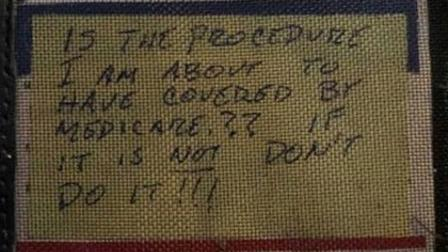 IS THE PROCEDURE
I AM ABOUT TO
HAVE COVERED BY
MEDICARE.?? IF
IT IS NOT DON'T
DO IT!!!